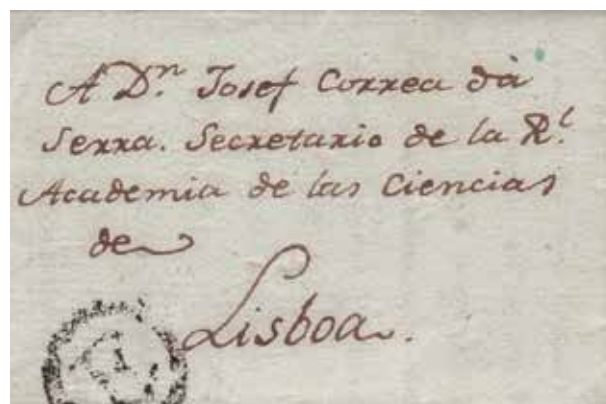 A Dn. Josef Correa dà
Serra. Secretario de la Rl.
Academia de las Ciencias
de
Lisboa.